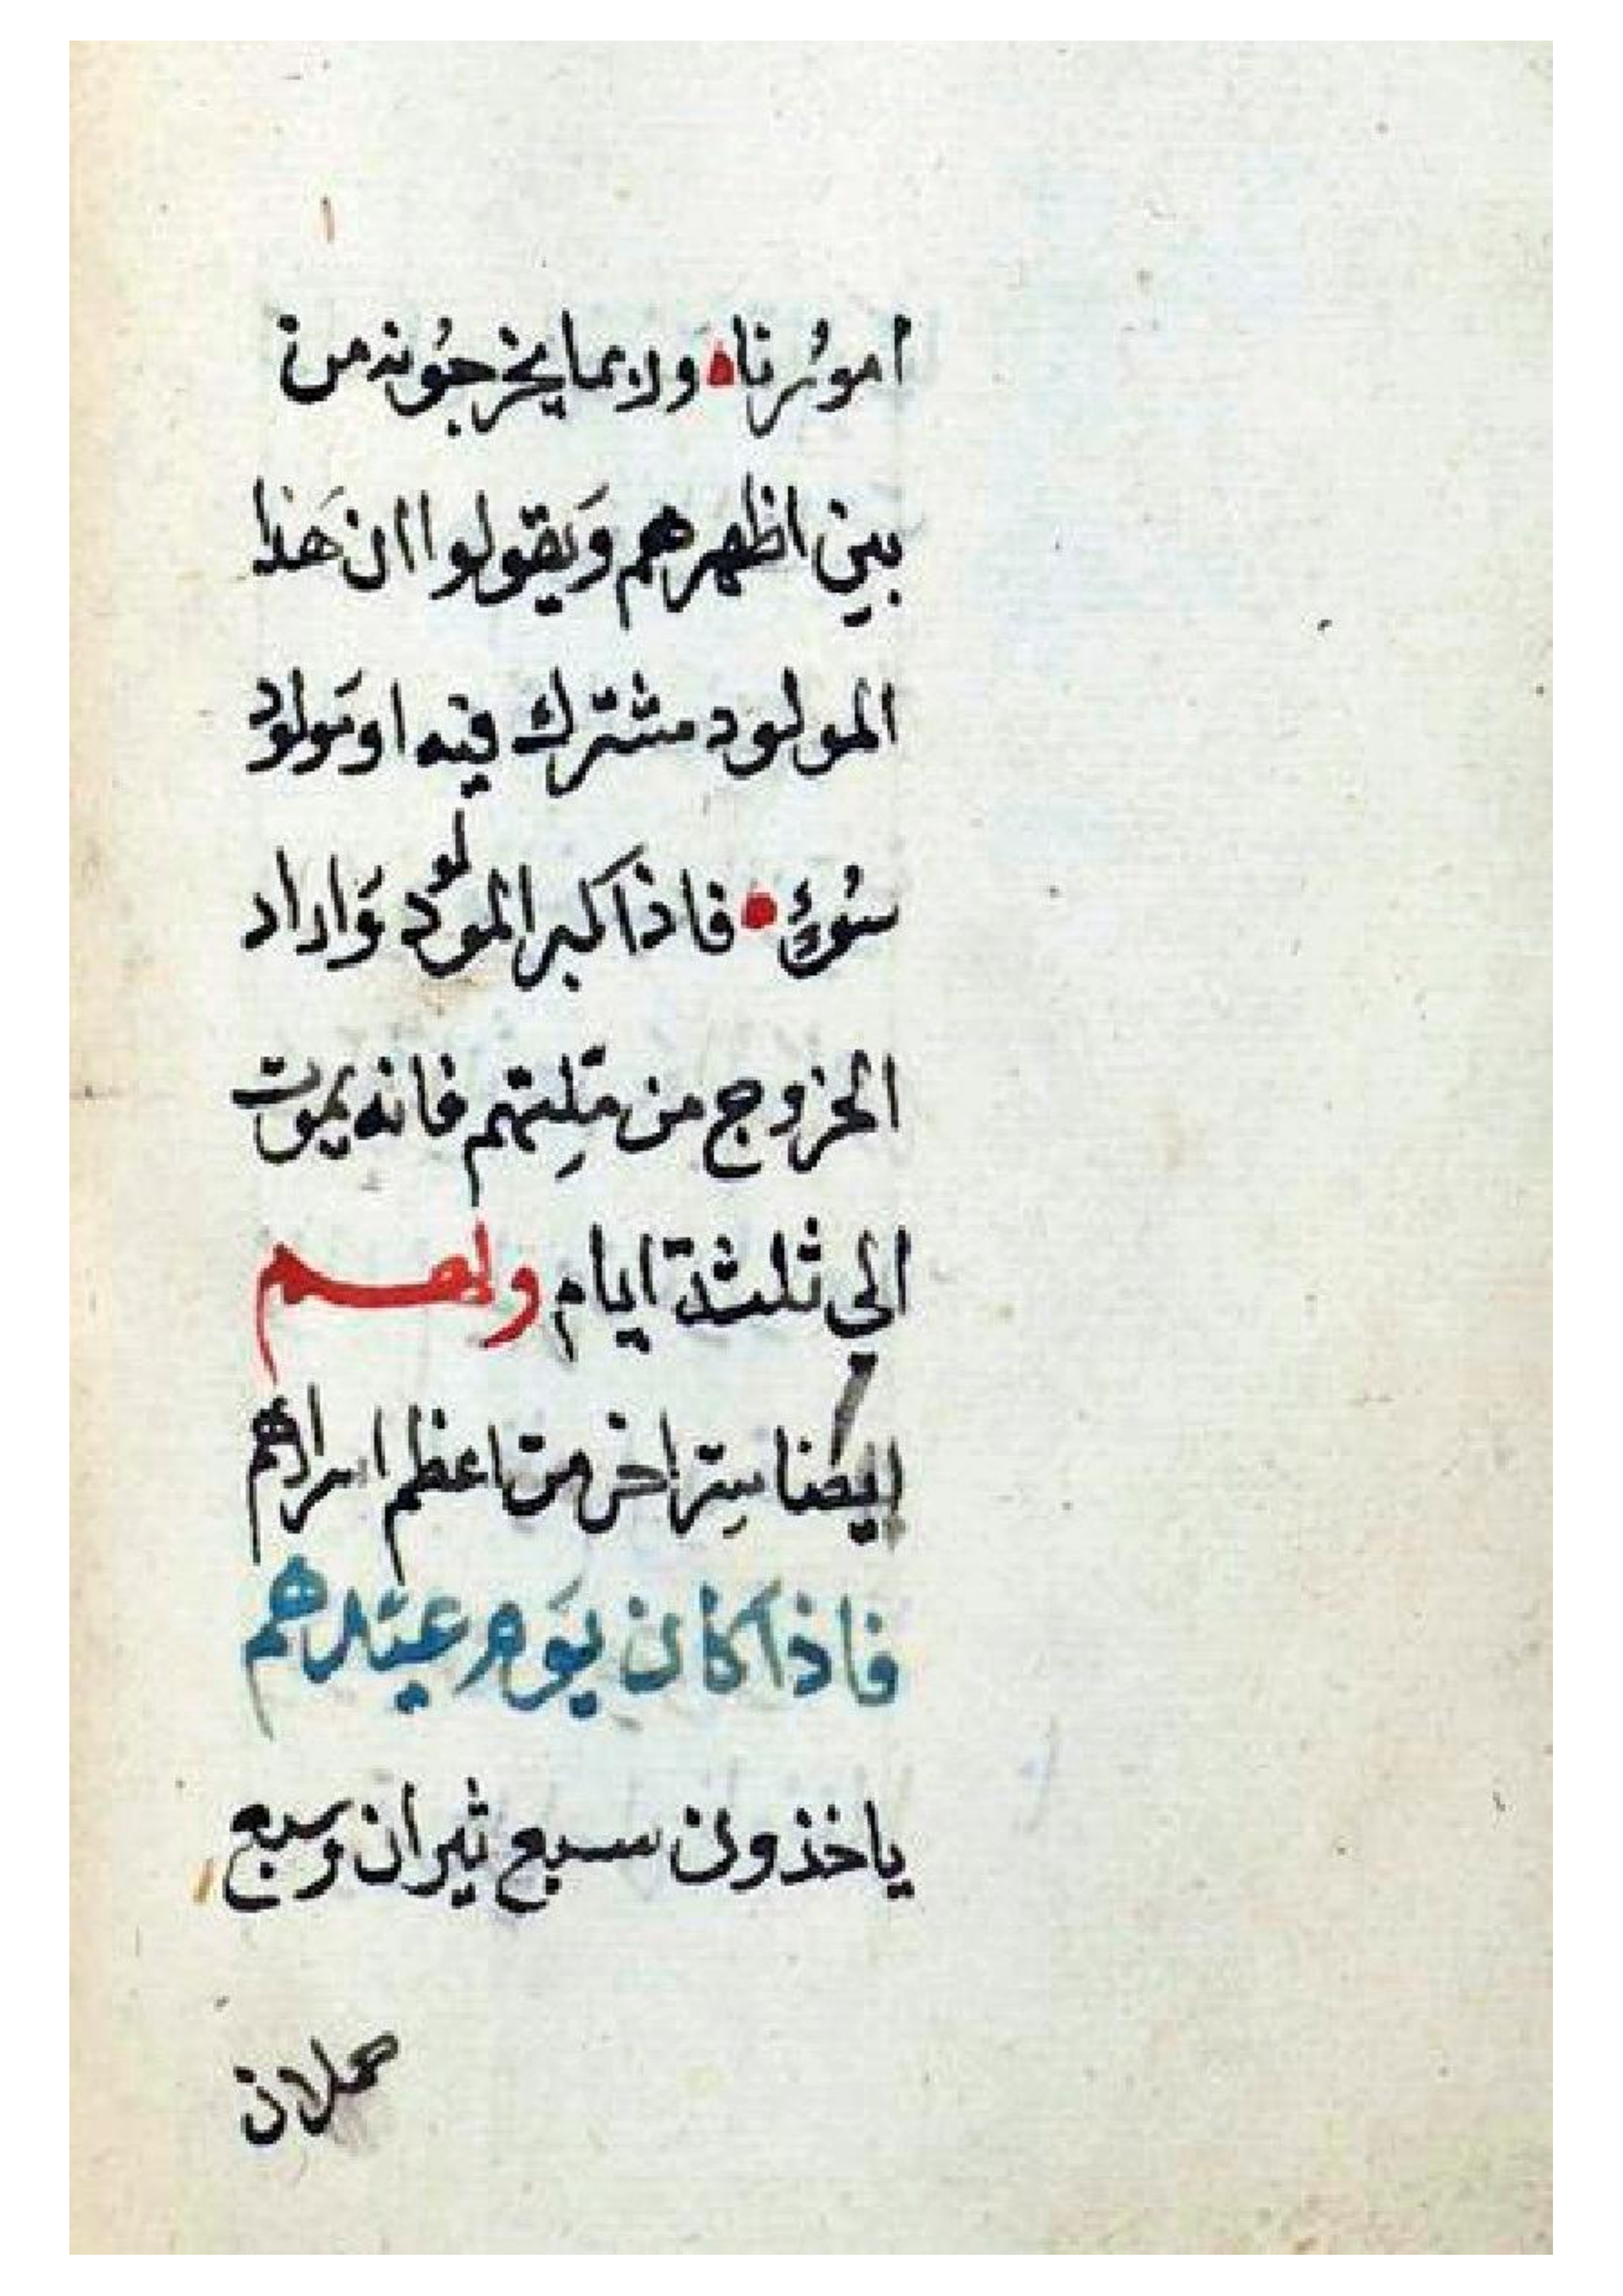 امورنا ولا بما يخرجونه من
بين اظهرهم ويقولوا ان هذا
المولود مشترك فيه او مولود
سوء فاذا كبر المولود واراد
الخروج من ملتهم فانه يموت
الي ثلثة ايام ولهم
ايضا ستر اخر من اعظم اسرارهم
فاذا كان يوم عيدهم
ياخذون سبع ثيران وسبع
حملان